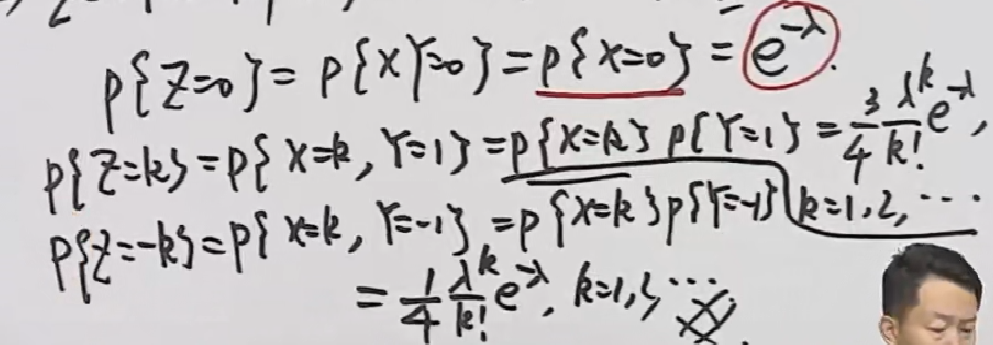 P{Z=0} = P{XY=0} = P{X=0} = e^{-λ}.
P{Z=k} = P{X=k, Y=1} = P{X=k} P{Y=1} = \frac{3}{4} \frac{λ^k}{k!} e^{-λ},
k=1,2,⋯
P{Z=-k} = P{X=k, Y=-1} = P{X=k}P{Y=-1}
= \frac{1}{4} \frac{λ^k}{k!} e^{-λ}, k=1, ⋯